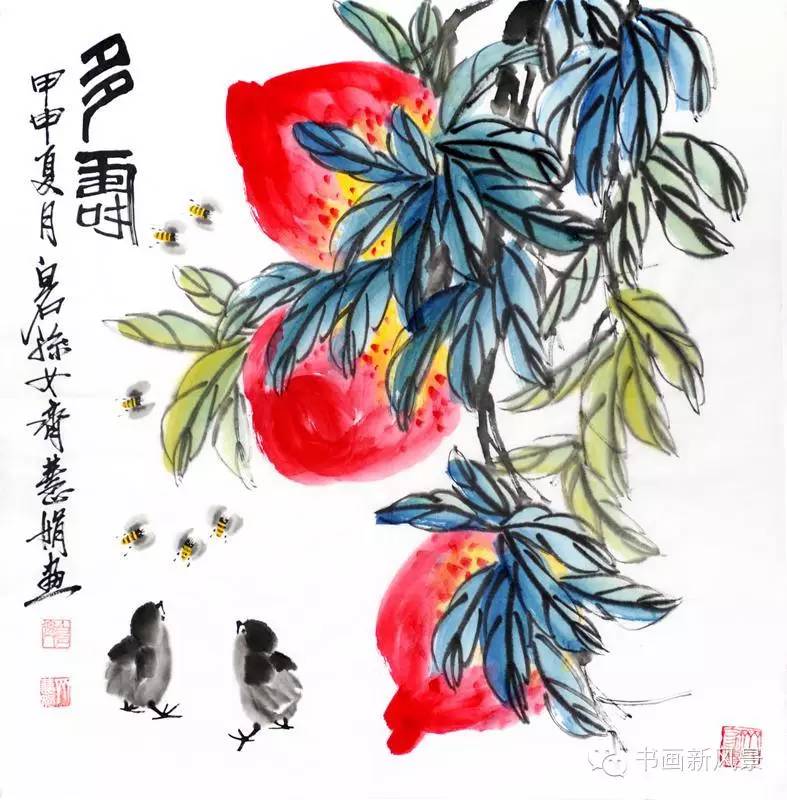 多壽
甲申夏月白石孫女齊慧娟画
书画新风景